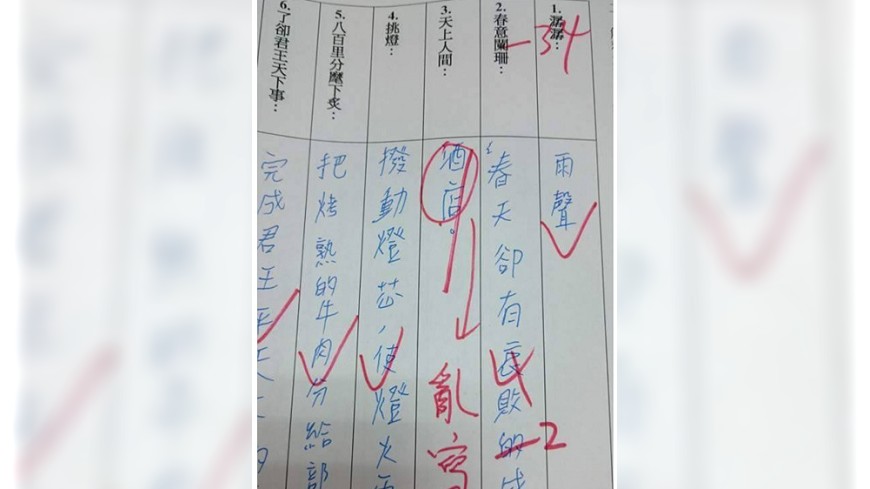 1.潺潺：
-34
雨聲
2.春意闌珊：
春天卻有衰敗的
-2
3.天上人間：
酒店。
亂寫
4.挑燈：
撥動燈芯，使燈火
5.八百里分麾下炙：
把烤熟的牛肉分給部
6.了卻君王天下事：
完成君王